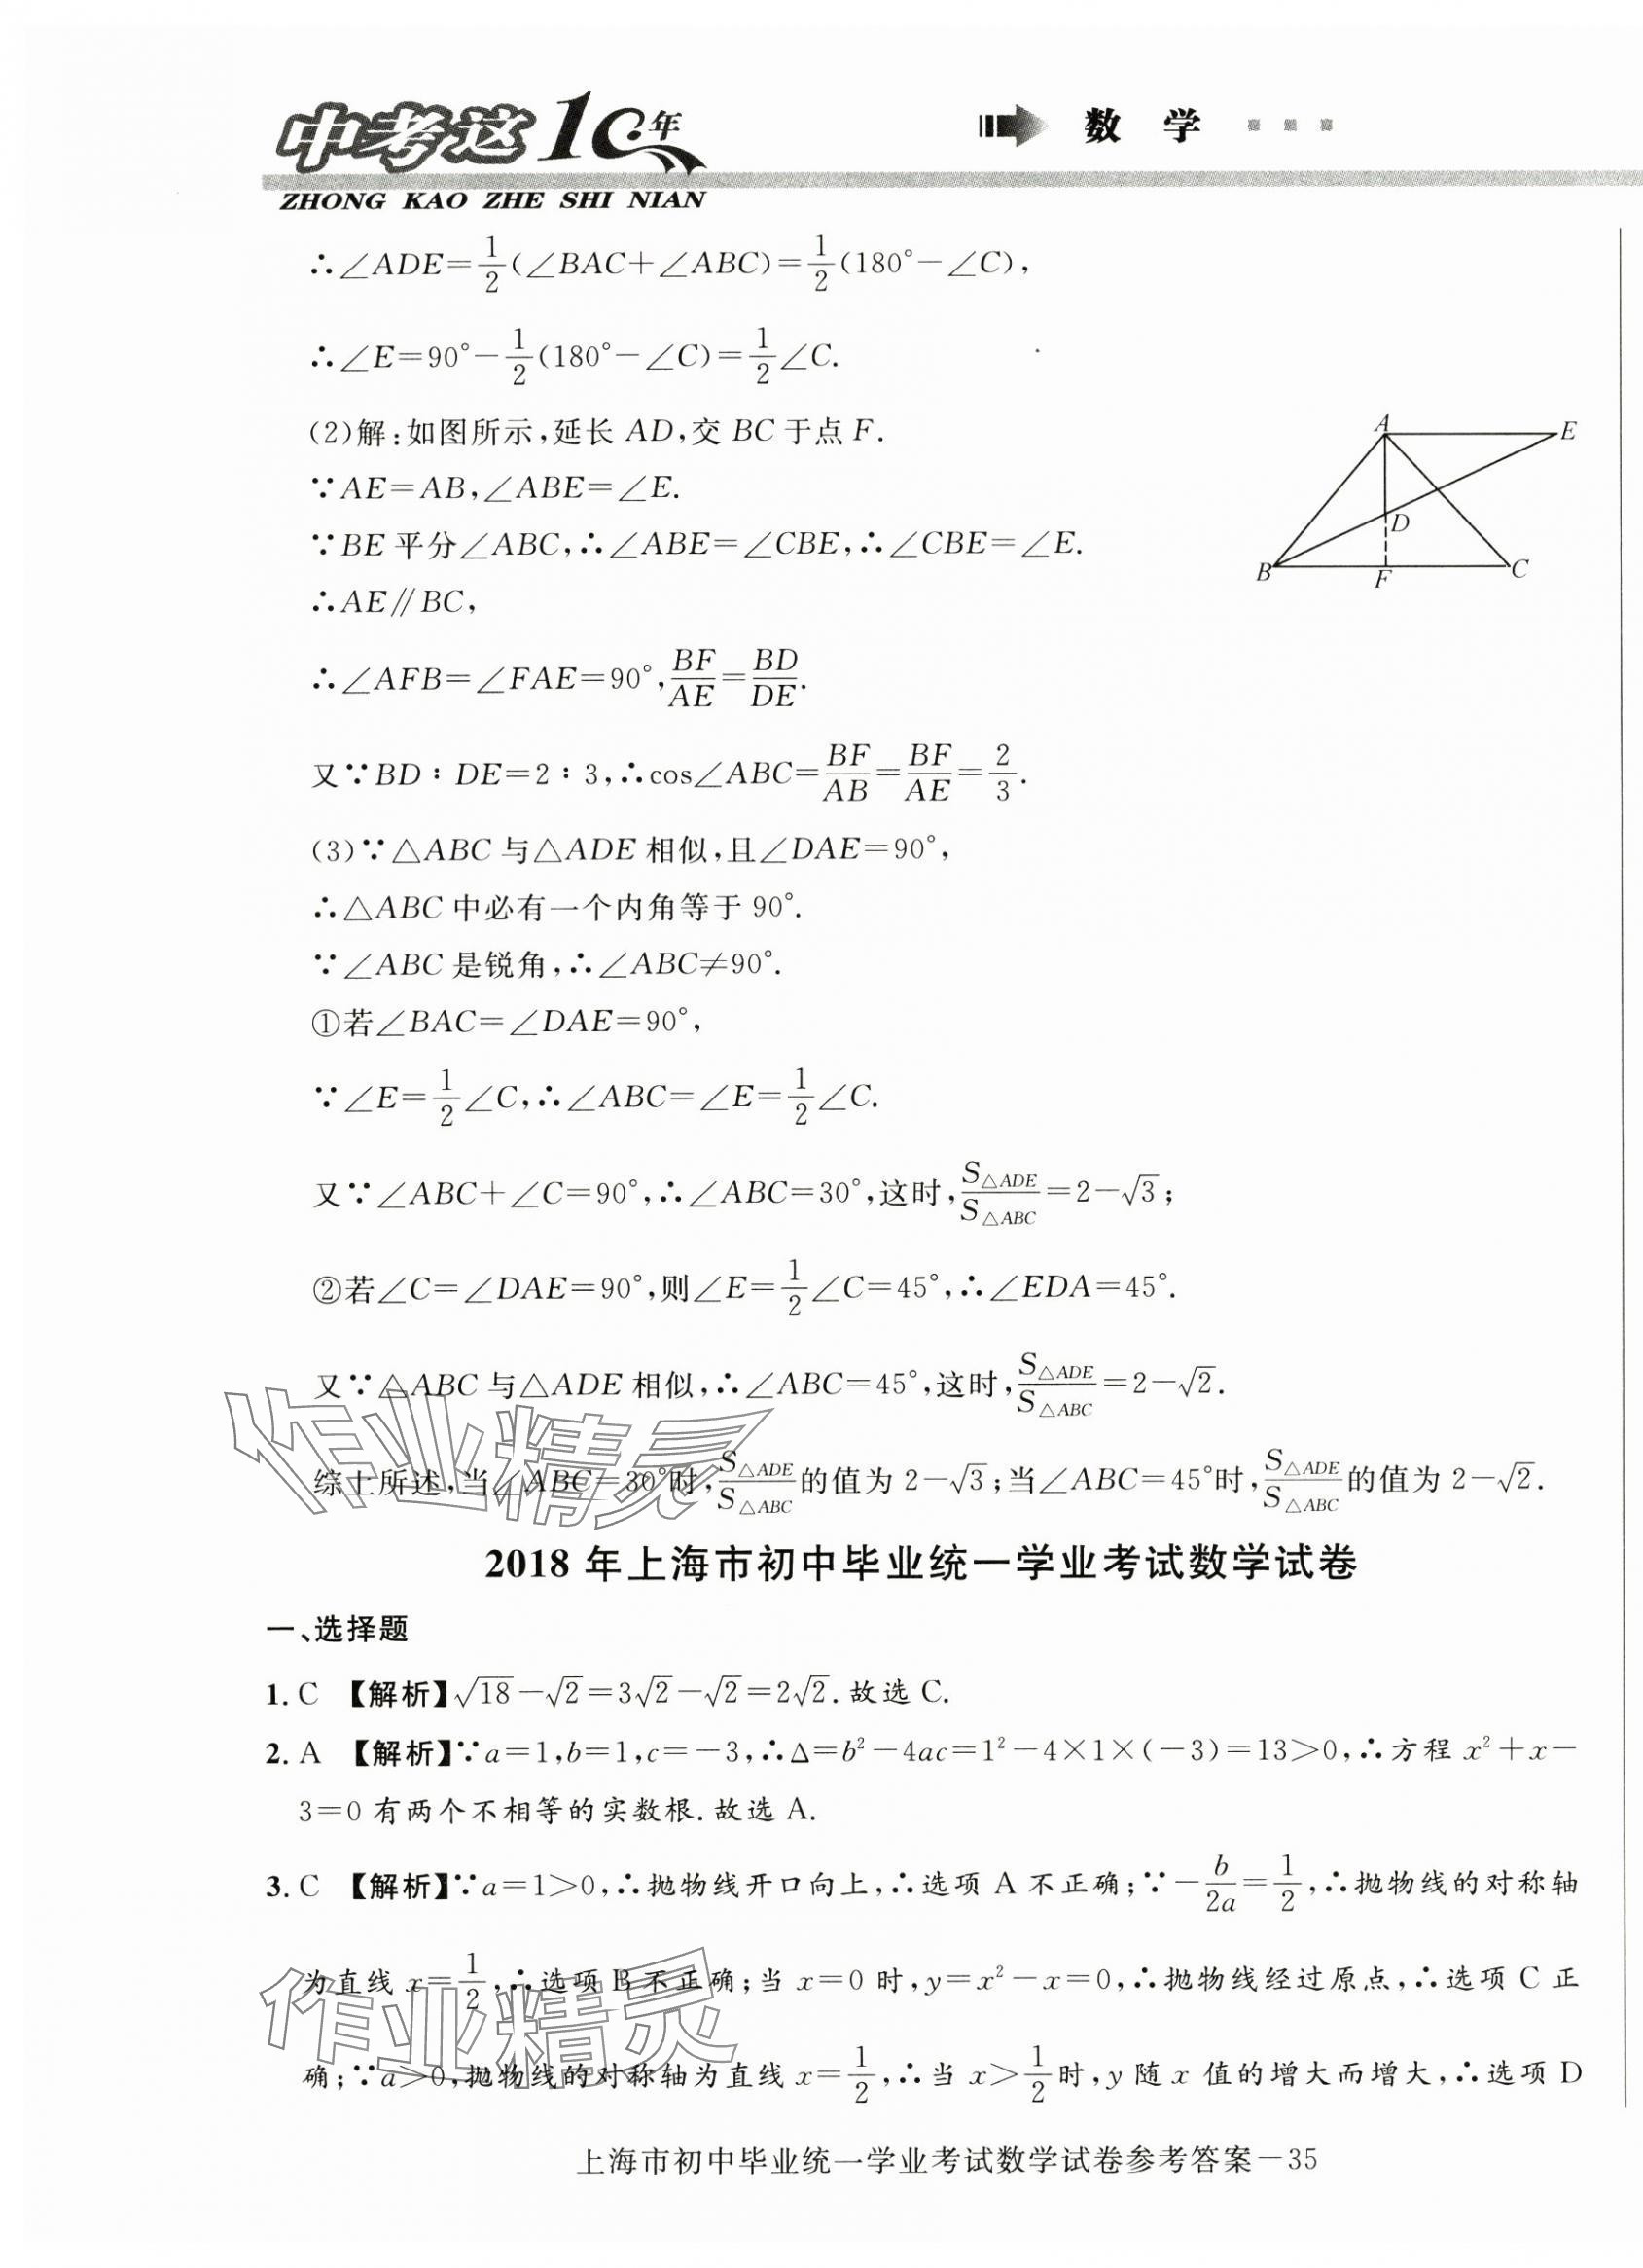 中考这10年
数 学
ZHONG KAO ZHE SHI NIAN
∴∠ADE=1/2(∠BAC+∠ABC)=1/2(180°-∠C),
∴∠E=90°-1/2(180°-∠C)=1/2∠C.
(2)解:如图所示,延长 AD,交 BC 于点 F.
∵AE=AB,∠ABE=∠E.
∵BE 平分∠ABC,∴∠ABE=∠CBE,∴∠CBE=∠E.
∴AE∥BC,
A
E
D
B
F
C
∴∠AFB=∠FAE=90°,BF/AE=BD/DE.
又∵BD∶DE=2∶3,∴cos∠ABC=BF/AB=BF/AE=2/3.
(3)∵△ABC 与△ADE 相似,且∠DAE=90°,
∴△ABC 中必有一个内角等于 90°.
∵∠ABC 是锐角,∴∠ABC≠90°.
①若∠BAC=∠DAE=90°,
∵∠E=1/2∠C,∴∠ABC=∠E=1/2∠C.
又∵∠ABC+∠C=90°,∴∠ABC=30°,这时,S△ADE/S△ABC=2-√3;
②若∠C=∠DAE=90°,则∠E=1/2∠C=45°,∴∠EDA=45°.
又∵△ABC 与△ADE 相似,∴∠ABC=45°,这时,S△ADE/S△ABC=2-√2.
综上所述,当∠ABC=30°时,S△ADE/S△ABC的值为 2-√3;当∠ABC=45°时,S△ADE/S△ABC的值为 2-√2.
作业精灵
2018 年上海市初中毕业统一学业考试数学试卷
一、选择题
1. C 【解析】√18-√2=3√2-√2=2√2.故选 C.
2. A 【解析】∵a=1,b=1,c=-3,∴Δ=b²-4ac=1²-4×1×(-3)=13>0,∴方程 x²+x-
3=0 有两个不相等的实数根.故选 A.
3. C 【解析】∵a=1>0,∴抛物线开口向上,∴选项 A 不正确;∵-b/2a=1/2,∴抛物线的对称轴
为直线 x=1/2,∴选项 B 不正确;当 x=0 时,y=x²-x=0,∴抛物线经过原点,∴选项 C 正
确;∵a>0,抛物线的对称轴为直线 x=1/2,∴当 x>1/2时,y 随 x 值的增大而增大,∴选项 D
作业精灵
上海市初中毕业统一学业考试数学试卷参考答案-35